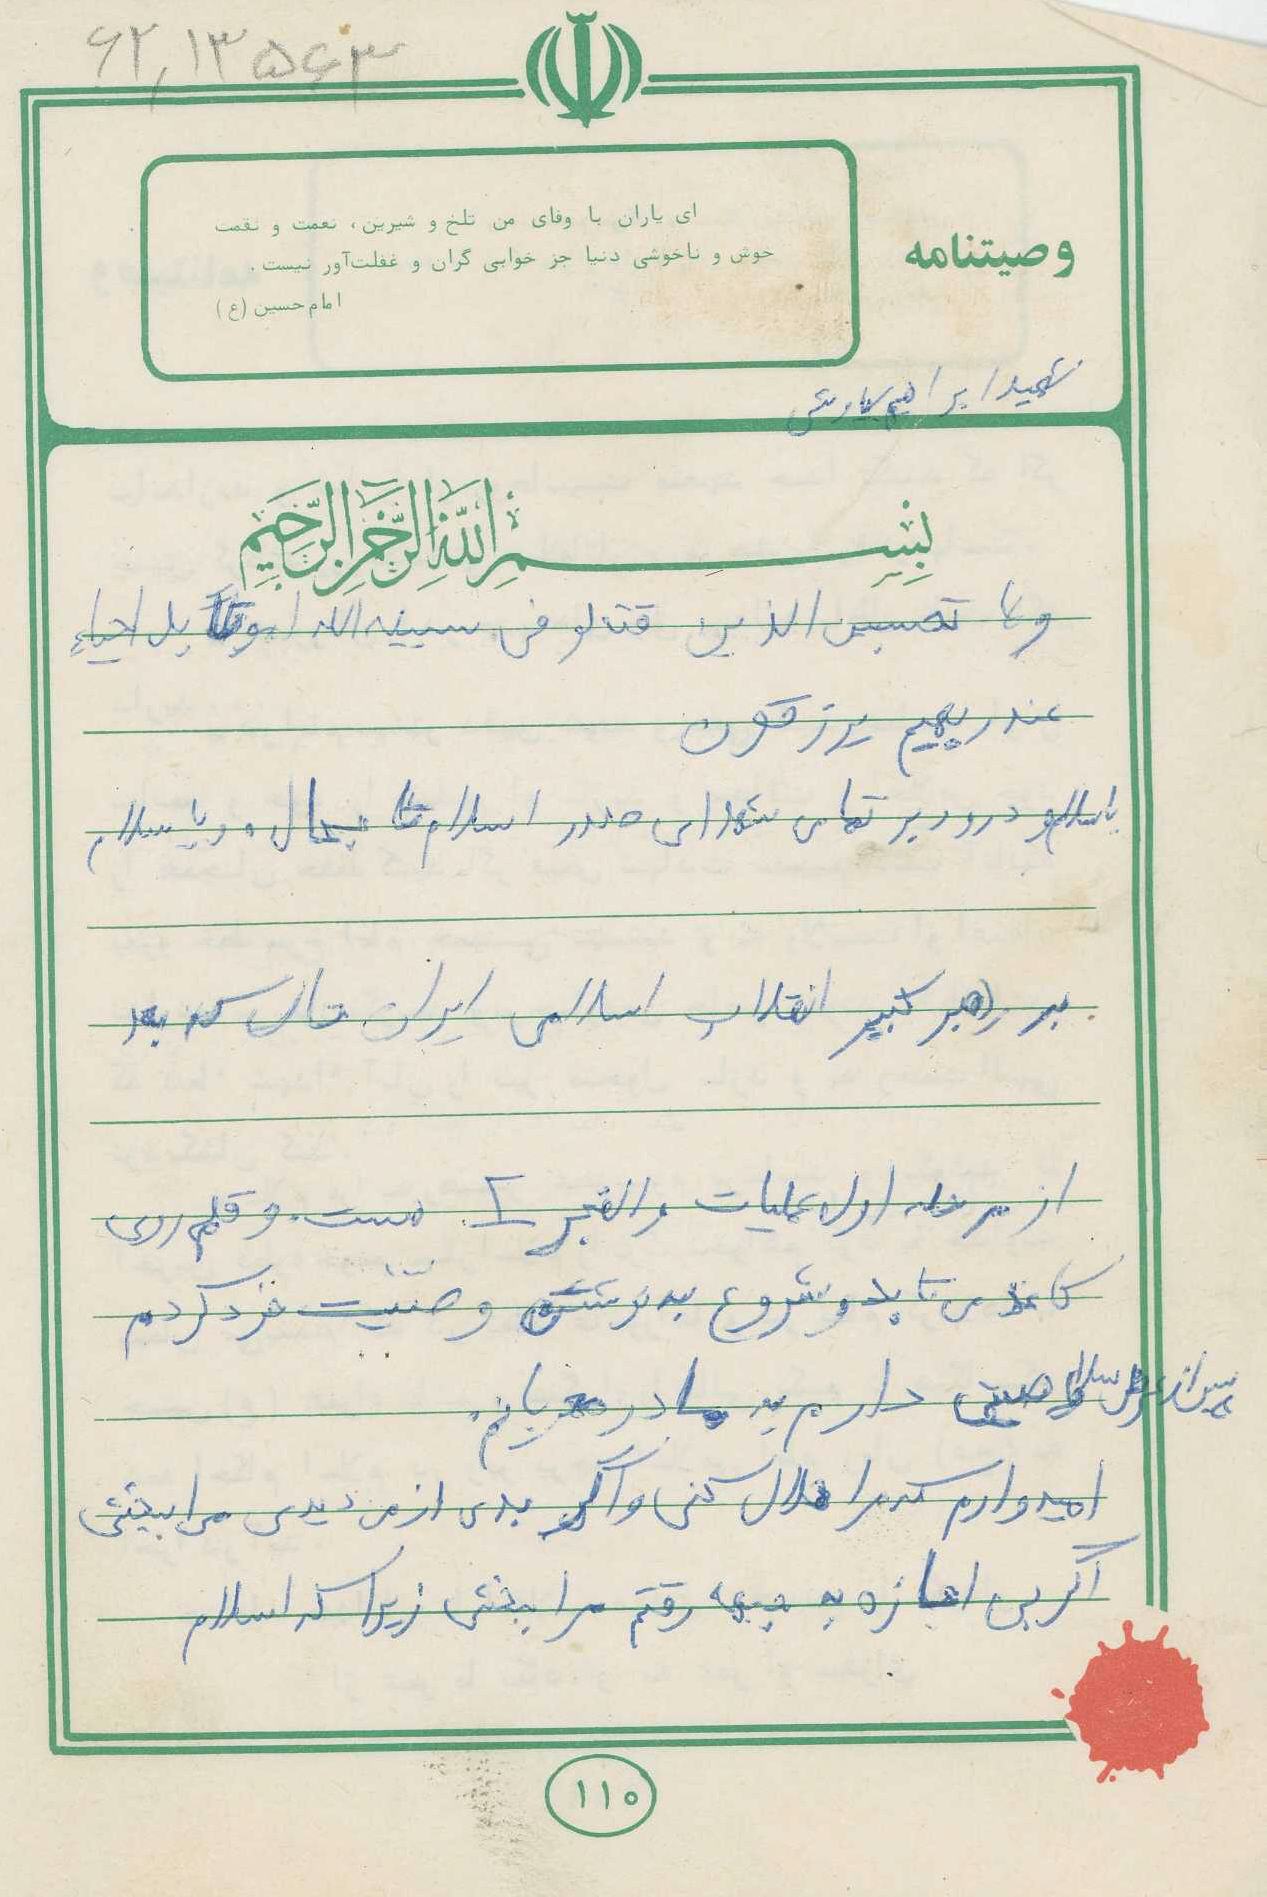 ۶۲٫۱۳۵۶۳
وصیتنامه
ای یاران با وفای من تلخ و شیرین، نعمت و نقمت
خوش و ناخوشی دنیا جز خوابی گران و غفلت‌آور نیست.
امام حسین (ع)
شهید ابراهیم
بسم الله الرحمن الرحیم
ولا تحسبن الذین قتلو فی سبیل الله امواتا بل احیاء
عند ربهم یرزقون
باسلام و درود بر تمامی شهدای صدر اسلام تا بحال و با سلام
بر رهبر کبیر انقلاب اسلامی ایران حال که بعد
از مرحله اول عملیات والفجر I هست و قلم روی
کاغذ می تابد و شروع به نوشتن وصیت خود کردم
پس از عرض سلام وصیتی دارم به مادر مهربانم.
امیدوارم که مرا حلال کنی و اگر بدی از من دیدی مرا ببخشی
اگر بی اجازه به جبهه رفتم مرا ببخشی زیرا که اسلام
۱۱۰